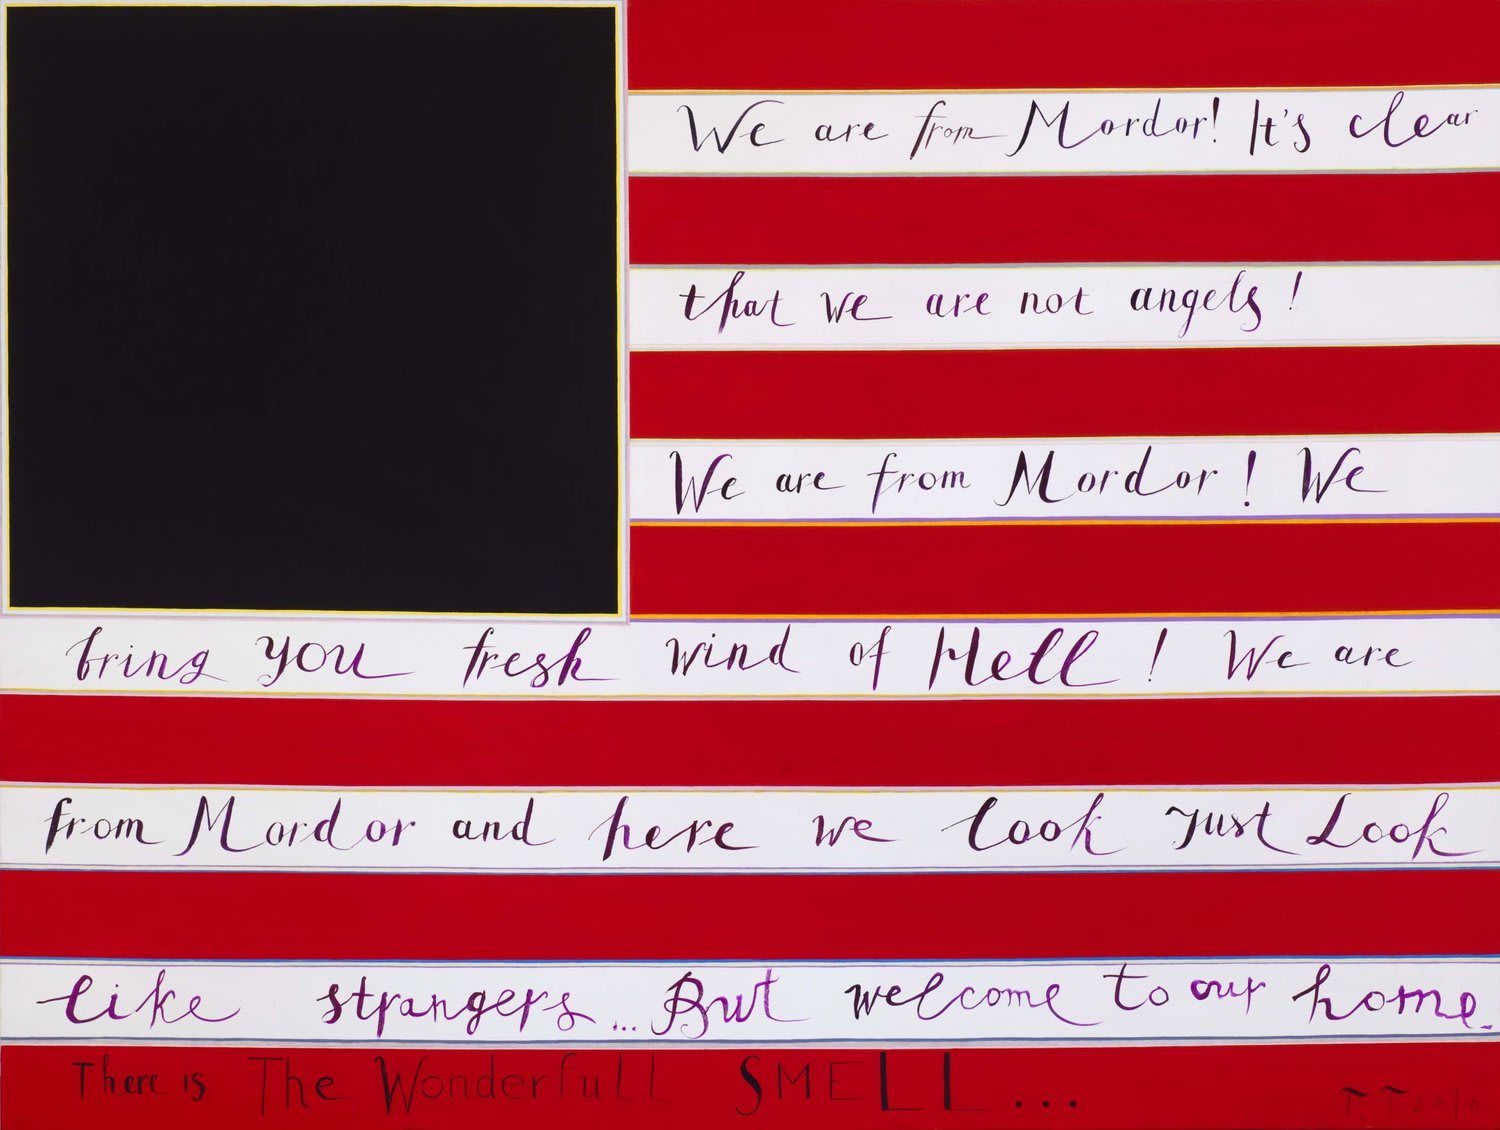 We are from Mordor! It's clear
that we are not angels!
We are from Mordor! We
bring you fresh wind of Hell! We are
from Mordor and here we look Just Look
like strangers... But welcome to our home.
There is The Wonderfull SMELL...
T.T 2010